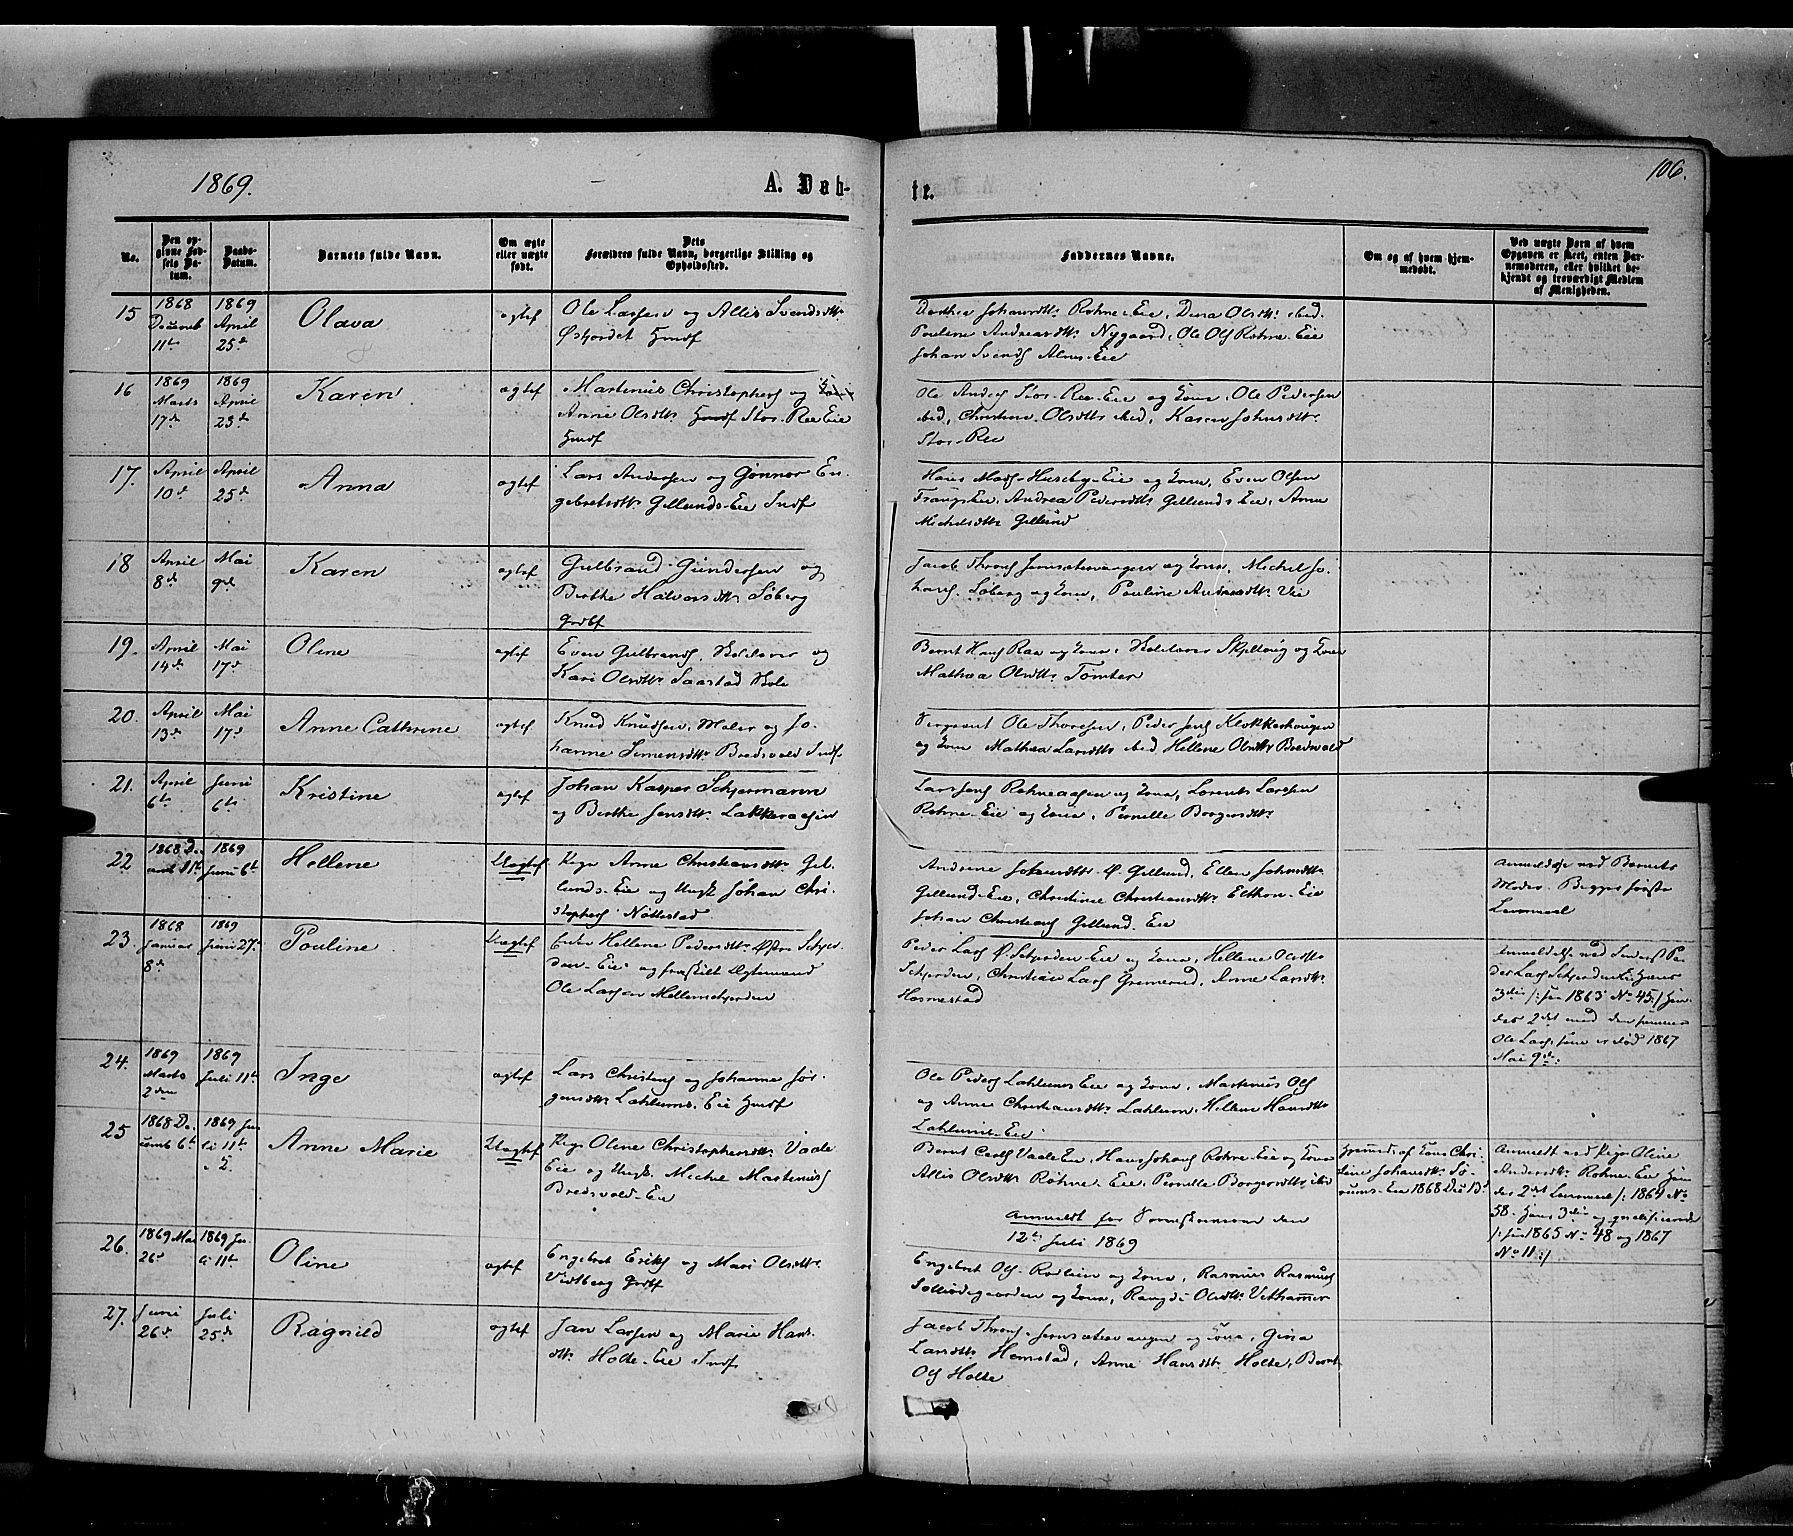 1869.
A. Døb-
te.
106.
No.
Den op-
givne Fød-
sels Da-
tum.
Daabs-
Datum.
Barnets fulde Navn.
Om ægte
eller uægte
født.
Dets
Forældres fulde Navn, borgerlige Stilling og
Opholdssted.
Faddernes Navne.
Om og af hvem hjem-
medøbt.
Ved uægte Barn af hvem
Opgaven er skeet, enten Bar-
nemoderen, eller hvilket be-
kjendt og troværdigt Medlem
af Menigheden.
15
1868
Decemb
11te
1869
April
25de
Olava
ægtef
Ole Larsen og Alles Svendsdtr
Østjordet
Dorthea Johansdtr Rohne-Eie, Dina Olsdtr ibid.
Pauline Andreasdtr Nygaard, Ole Ols Rohne-Eie
Johan Svends Alnes-Eie
16
1869
Marts
17de
1869
April
23de
Karen
ægtef
Martinus Christophers og
Anne Olsdtr Stor-Ree Eie
Ole Anders Stor-Ree-Eie og Kone, Ole Pedersen
ibid, Christine Olsdtr ibid, Karen Johnsdtr
Stor-Ree
17.
April
10de
April
25de
Anna
ægtef
Lars Andersen og Gønnor En-
gebretsdtr Gillunds-Eie Indf
Hans Mads Huseby-Eie og Kone, Even Olsen
Trangs Eie, Andrea Pedersdtr Gillunds Eie, Anne
Michelsdtr Gillund
18
April
8de
Mai
9de
Karen
ægtef
Gulbrand Gundersen og
Berthe Halvorsdtr Søberg
Jacob Throns og Kone, Michel Jo-
hans. Søberg og Kone, Pauline Andreasdtr Vie
19.
April
14de
Mai
17d
Oline
ægtef
Even Gulbrands, Skolelærer og
Kari Olsdtr Saastad Skole
Bernt Hans Raa og Kone, Skolelærer Skjelloug og Kone
Mathea Olsdtr Tomter
20.
April
13de
Mai
17d
Anne Cathrine
ægtef
Knud Knudsen, Maler og Jo-
hanne Simensdtr Bredsvold Indf.
Sergeant Ole Thoresen, Peder Jens Klokkerhaugen
og Kone Mathea Larsdtr ibid, Hellene Olsdtr Bredvold
21.
April
6te
Juni
6te
Kristine
ægtef
Johan Kasper Schjermann
og Berthe Jensdtr Løkkeraasen
Lars Jens Rohneaasen og Kone, Lorents Larsen
Rohne-Eie og Kone, Pernille Borgersdtr
22
1868 De-
cemb 11te
1869
Juni 6te
Hellene
Uægtef
Pige Anne Christiansdtr Gil-
lunds-Eie og Ungk Johan Chri-
stophers Nøttestad
Andrine Johansdtr Ø. Gillund, Ellen Johnsdtr
Gillund-Eie, Christine Christiansdtr Elthon-Eie
Johan Christians Gillund-Eie
Anmeldelse ved Barnets
Moder. Begges første
Leiermaal
23.
1868
Januar
8de
1869
Juni 27de
Pouline
Uægtef
Enke Hellene Pedersdtr Østre Schjer-
den-Eie og fraskilt Ægtemand
Ole Larsen Mellemschjerden
Peder Lars Ø. Schjerden-Eie og Kone, Hellene Olsdtr
Schjerden, Christian Lars Gremerud, Anne Larsdtr
Hosmestad
Anmeldelse ved Pe-
der Lars Schjerden Eie Hans
3die /: See 1863 No 45:/ Hen-
des 2det med den samme
Ole Lars, hun er død 1867
Mai 9de:
24.
1869
Marts
2den
1869
Juli 11te
Inge
ægtef
Lars Christens og Johanne Jør-
gensdtr Lahlums-Eie
Ole Peders Lahlums Eie og Kone, Martinus Ols
og Anne Christiansdtr Lahlum, Hellene Hansdtr
Lahlums-Eie.
25
1868 De-
cemb 6te
1869 Ju-
li 11te
Anne Marie
Uægtef
Pige Oline Christophersdtr Vaale
Eie og Ungk Michel Martinus
Bredsvold-Eie
Bernt Carls Vaale Eie, Hans Johans Rohne-Eie og Kone
Alles Olsdtr Rohne-Eie, Pernille Borgersdtr ibid
Anmeldt for den
12te Juli 1869
Hjemmed. af Kone Chri-
stine Johansdtr
Eie 1868 Dec 13de
Anmeldt ved Pige Oline
Andersdtr Rohne-Eie Hen-
des 2det Leiermaal /: 1864 No
58. Hans 3die og
/: See 1865 No 48 og 1867
No 11:/
26.
1869 Mai
26de
1869 Ju-
li 11te
Oline
ægtef
Engebret Eriks og Mari Olsdtr
Vidtberg
Engebret Ols og Kone, Rasmus Rasmus
og Kone, Rangdi Olsdtr Vethammer
27.
Juni
26de
Juli
25de
Ragnild
ægtef
Jan Larsen og Marie Hans-
dtr Holte-Eie Indf
Jacob Throns og Kone, Gina
Larsdtr Hemstad, Anne Hansdtr Holte, Bernt
Ols Holte